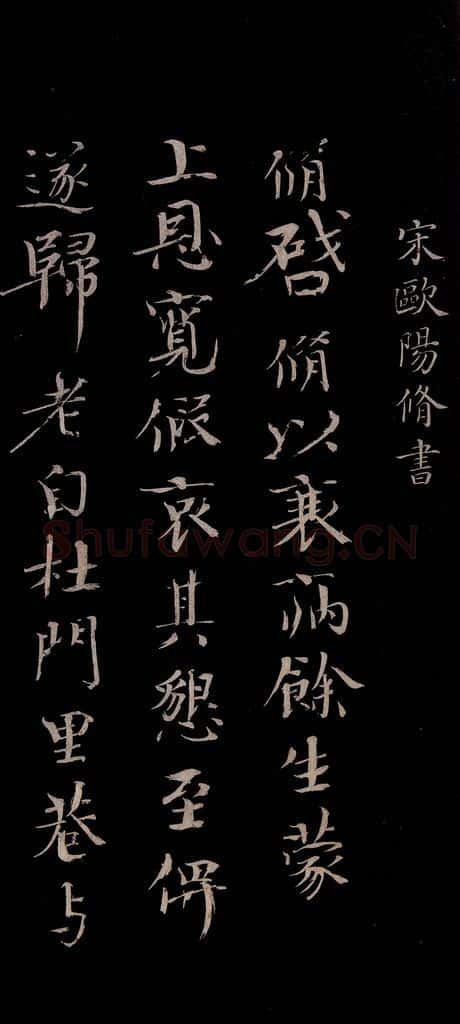 宋歐陽脩書
脩啓脩以衰病餘生蒙
上恩寬假哀其懇至俾
遂歸老自杜門里巷与
Shufawang.CN